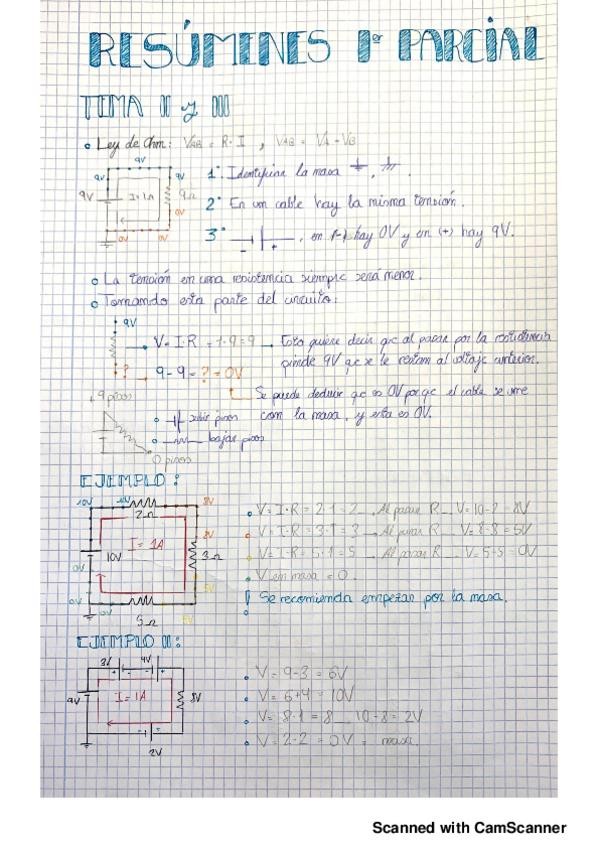 RESÚMENES 1er PARCIAL
TEMA II y III
Ley de Ohm: VAB = R·I , VAB = VA - VB
9V
9V 9V
9V I=1A 9Ω
0V
0V 0V
1° Identificar la masa
2° En un cable hay la misma tensión.
3° , en (-) hay 0V y en (+) hay 9V.
La tensión en una resistencia siempre será menor.
Tomando esta parte del circuito:
9V
V=I·R = 1·9 = 9 Esto quiere decir qe al pasar por la resistencia
pierde 9V qe se le restan al voltaje anterior.
? 9-9 = ? = 0V
Se puede deducir qe es 0V porqe el cable se une
con la masa, y esta es 0V.
+9 pisos
subir pisos
bajar pisos
0 pisos
EJEMPLO:
10V 10V 8V
2Ω
I=1A 8V
10V 3Ω
0V
5V
0V 0V 5V
5Ω
V=I·R=2·1=2 Al pasar R V=10-2=8V
V=I·R=3·1=3 Al pasar R V=8-3=5V
V=I·R=5·1=5 Al pasar R V=5-5=0V
V en masa = 0.
Se recomienda empezar por la masa.
EJEMPLO II:
3V 4V
9V I=1A 8V
2V
V=9-3=6V
V=6+4=10V
V=8·1=8 10-8=2V
V=2-2=0V= masa.
Scanned with CamScanner